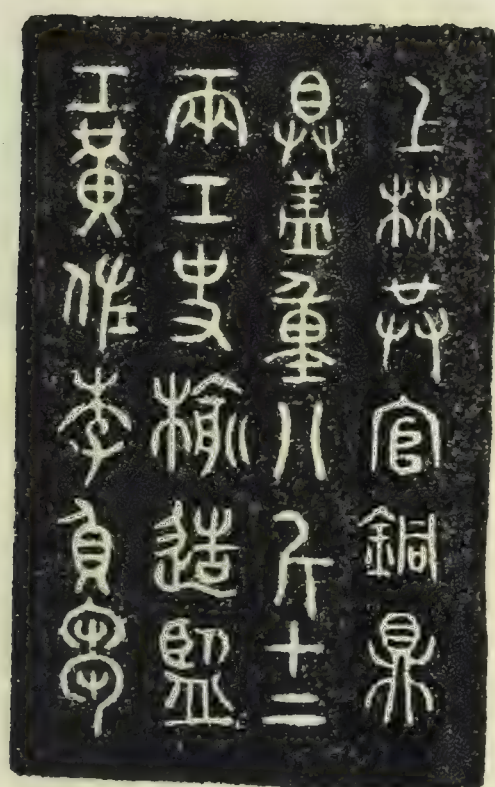 上林共官銅鼎
具蓋重八斤十二
兩工史榆造監
工黃佐李負芻